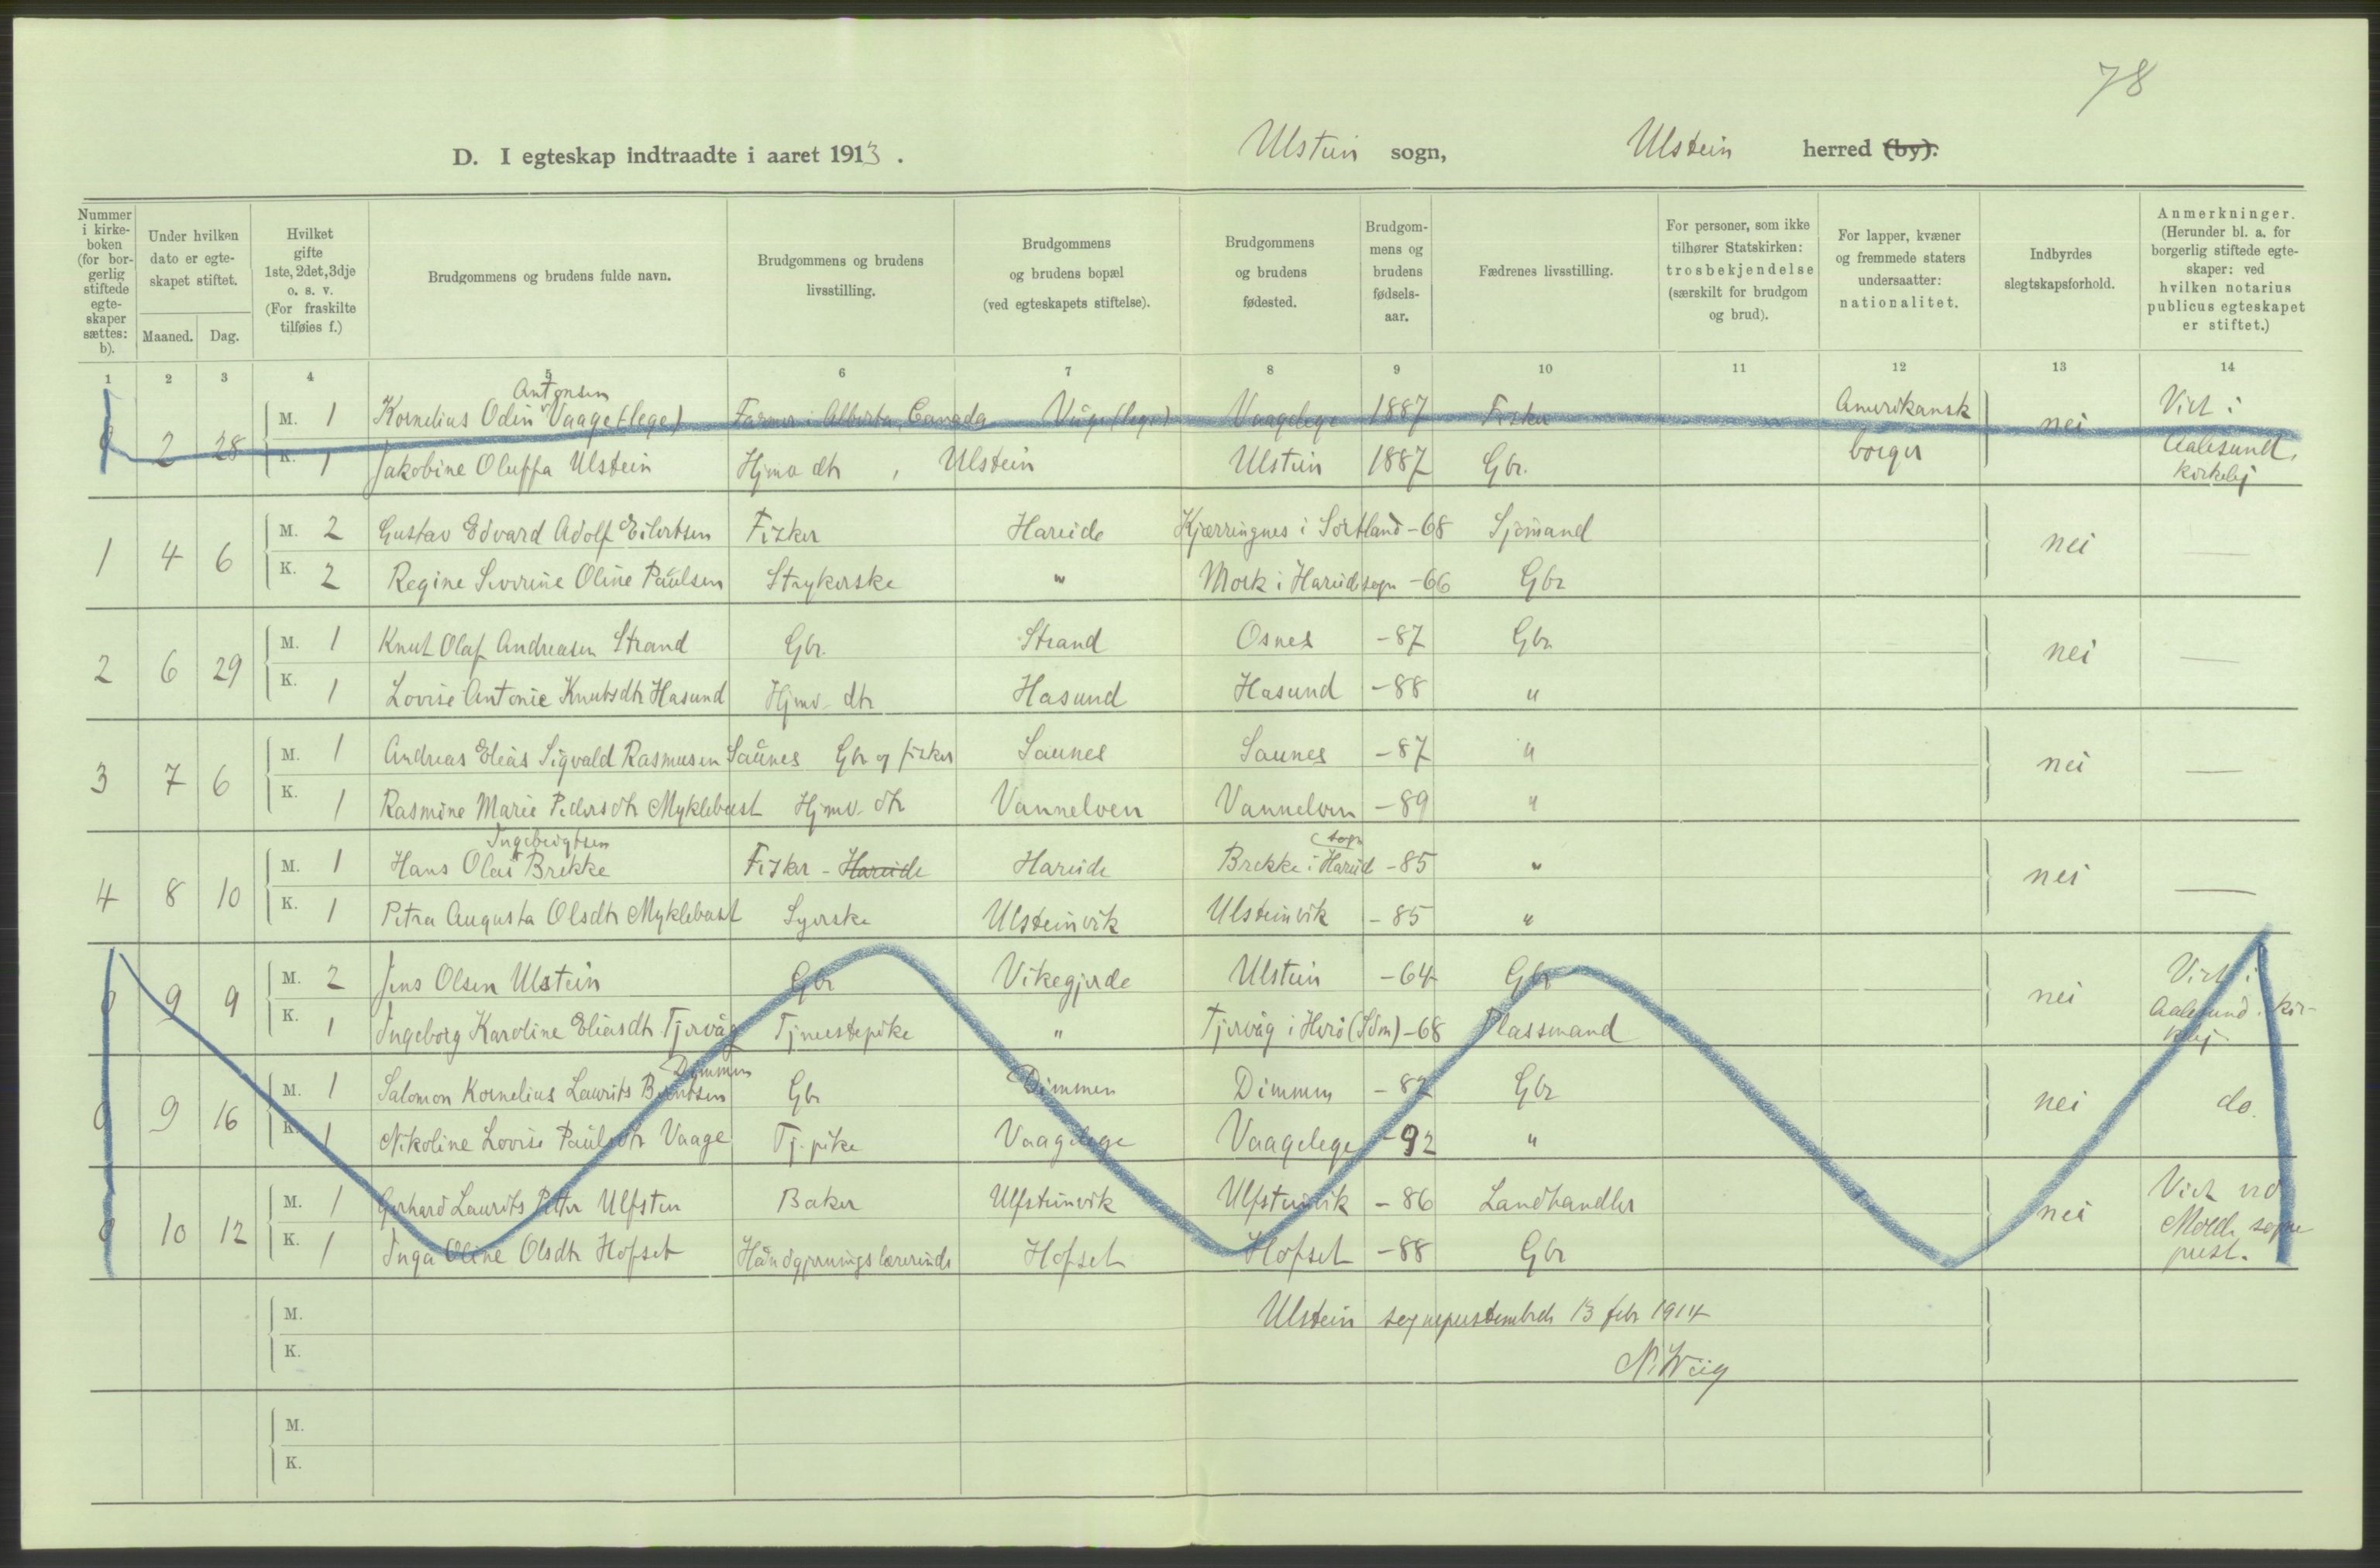 78
D. I egteskap indtraadte i aaret 1913. Ulstein sogn, Ulstein herred (by).
Nummer i kirkeboken (for borgerlig stiftede egteskaper sættes: b).
Under hvilken dato er egteskapet stiftet.
Maaned. Dag.
Hvilket gifte 1ste, 2det, 3dje o. s. v. (For fraskilte tilføies f.)
Brudgommens og brudens fulde navn.
Brudgommens og brudens livsstilling.
Brudgommens og brudens bopæl (ved egteskapets stiftelse).
Brudgommens og brudens fødested.
Brudgommens og brudens fødselsaar.
Fædrenes livsstilling.
For personer, som ikke tilhører Statskirken: trosbekjendelse (særskilt for brudgom og brud).
For lapper, kvæner og fremmede staters undersaatter: nationalitet.
Indbyrdes slegtskapsforhold.
Anmerkninger. (Herunder bl. a. for borgerlig stiftede egteskaper: ved hvilken notarius publicus egteskapet er stiftet.)
1 2 3 4 5 6 7 8 9 10 11 12 13 14
Antonsen
0 2 28 M. 1 Kornelius Odin Vaage(lege) Farmer i Alberta, Canada Våge(lege) Vaagelege 1887 Fisker Amerikansk nei Viet i
K. 1 Jakobine Oluffa Ulstein Hjmv dtr, Ulstein Ulstein 1887 Gbr. borger Aalesund, kirkelig
1 4 6 M. 2 Gustav Edvard Adolf Eilertsen Fisker Hareide Kjærringnes i Sortland -68 Sjømand nei —
K. 2 Regine Severine Oline Paulsen Strykerske " Mork i Hareid sogn -66 Gbr
2 6 29 M. 1 Knut Olaf Andreasen Strand Gbr. Strand Osnes -87 Gbr nei —
K. 1 Lovise Antonie Knutsdtr Hasund Hjmv. dtr Hasund Hasund -88 "
3 7 6 M. 1 Andreas Elias Sigvald Rasmusen Saunes Gbr og fisker Saunes Saunes -87 " nei —
K. 1 Rasmine Marie Pedersdtr Myklebust Hjmv. dtr Vannelven Vannelven -89 "
Ingebrigtsen sogn
4 8 10 M. 1 Hans Olai Brekke Fisker - Hareide Hareide Brekke i Hareid -85 " nei —
K. 1 Petra Augusta Olsdtr Myklebust Syerske Ulsteinvik Ulsteinvik -85 "
0 9 9 M. 2 Jens Olsen Ulstein Gbr Vikegjerde Ulstein -64 Gbr nei Viet i
K. 1 Ingeborg Karoline Eliasdtr Tjervåg Tjenestepike " Tjervåg i Herø (Sdm) -68 Plassmand Aalesund. kirkelig
Dimmen
0 9 16 M. 1 Salomon Kornelius Laurits Berntsen Gbr Dimmen Dimmen -82 Gbr nei do.
K. 1 Nikoline Lovise Paulsdtr Vaage Tj. pike Vaagelege Vaagelege -92 "
0 10 12 M. 1 Gerhard Laurits Peter Ulfsten Baker Ulfsteinvik Ulfsteinvik -86 Landhandler nei Viet ved
K. 1 Inga Oline Olsdtr Hofset Håndgjerningslærerinde Hofset Hofset -88 Gbr Molde sogneprest.
M. Ulstein sogneprestembede 13 febr 1914
K. N. Wiig
M.
K.